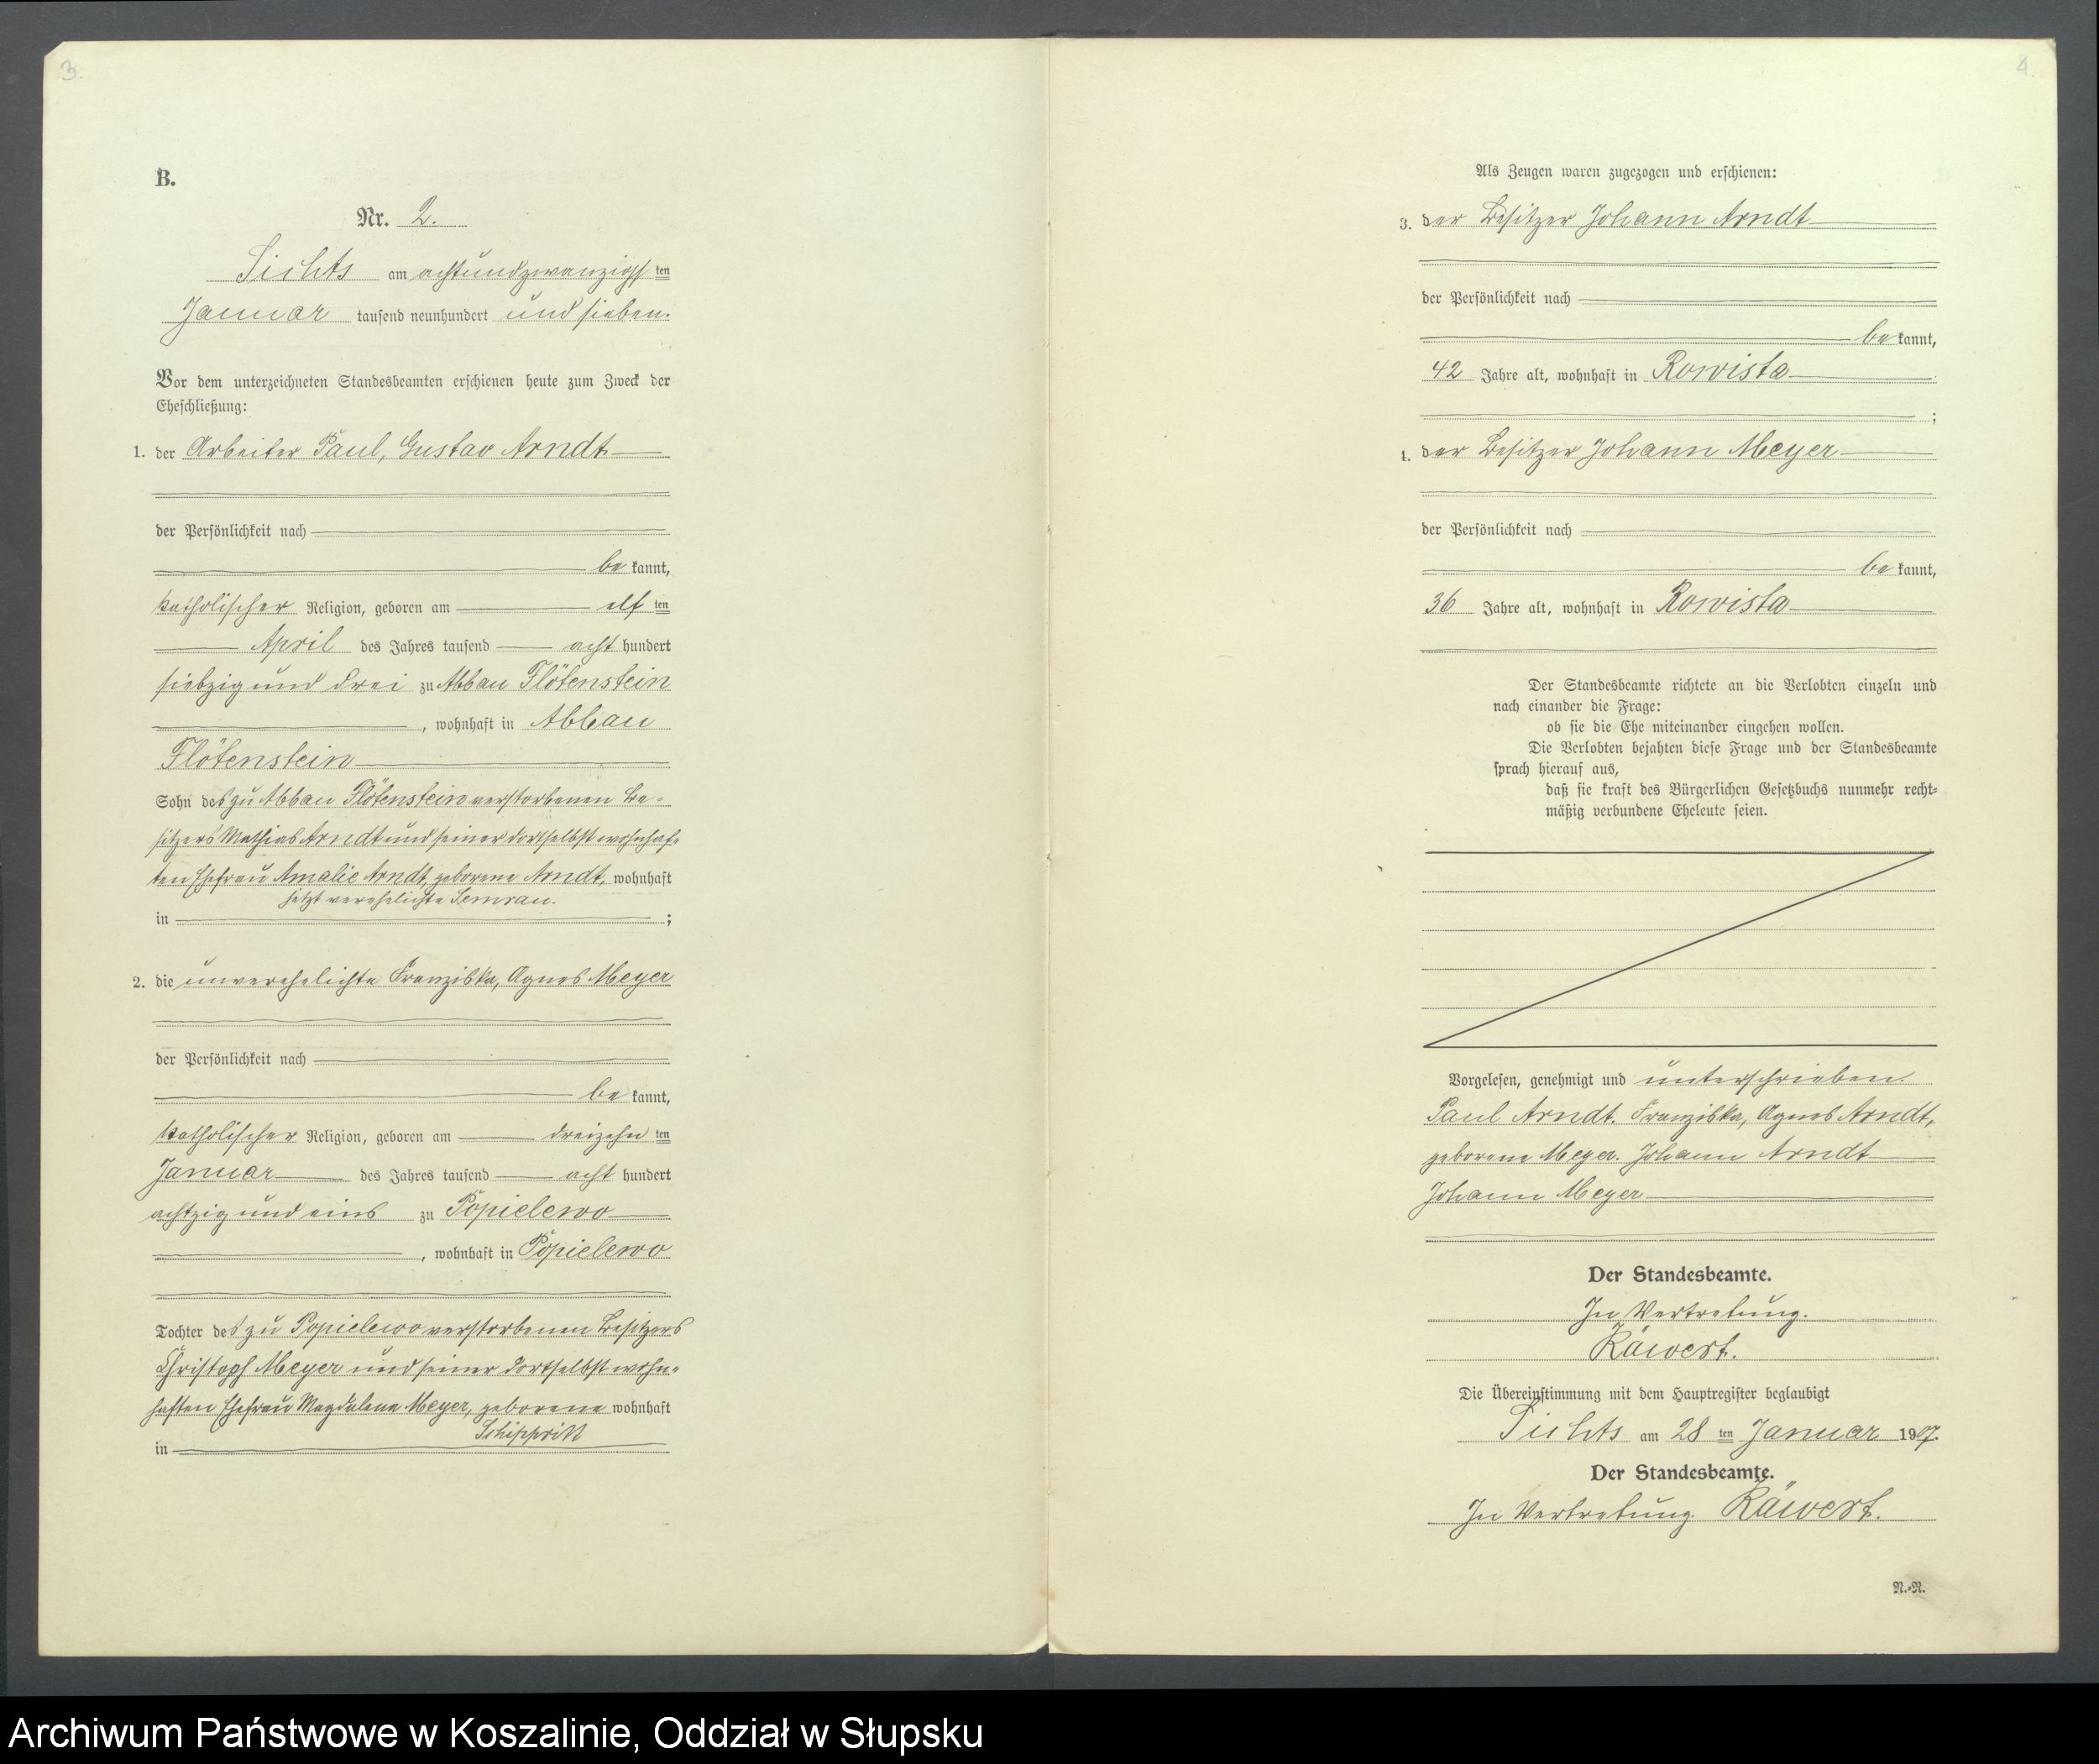 3.
B.
Nr. 2.
Sichts am achtundzwanzigsten
Januar tausend neunhundert und sieben.
Vor dem unterzeichneten Standesbeamten erschienen heute zum Zweck der
Eheschließung:
1. der Arbeiter Paul, Gustav Arndt
der Persönlichkeit nach
bekannt,
katholischer Religion, geboren am elften
April des Jahres tausend achthundert
siebzig und drei zu Abbau Flötenstein
, wohnhaft in Abbau
Flötenstein
Sohn des zu Abbau Flötenstein verstorbenen Be-
sitzers Mathias Arndt und seiner dortselbst wohnhaf-
ten Ehefrau Amalie Arndt, geborene Arndt, wohnhaft
jetzt verehelichte Semrau.
in ;
2. die unverehelichte Franziska, Agnes Meyer
der Persönlichkeit nach
bekannt,
katholischer Religion, geboren am dreizehnten
Januar des Jahres tausend achthundert
achtzig und eins zu Popielewo
, wohnhaft in Popielewo
Tochter des zu Popielewo verstorbenen Besitzers
Christoph Meyer und seiner dortselbst wohn-
haften Ehefrau Magdalena Meyer, geborene wohnhaft
in
4.
Als Zeugen waren zugezogen und erschienen:
3. der Besitzer Johann Arndt
der Persönlichkeit nach
bekannt,
42 Jahre alt, wohnhaft in Rowista
;
4. der Besitzer Johann Meyer
der Persönlichkeit nach
bekannt,
36 Jahre alt, wohnhaft in Rowista
Der Standesbeamte richtete an die Verlobten einzeln und
nach einander die Frage:
ob sie die Ehe miteinander eingehen wollen.
Die Verlobten bejahten diese Frage und der Standesbeamte
sprach hierauf aus,
daß sie kraft des Bürgerlichen Gesetzbuchs nunmehr recht-
mäßig verbundene Eheleute seien.
Vorgelesen, genehmigt und unterschrieben.
Paul Arndt. Franziska, Agnes Arndt,
geborene Meyer. Johann Arndt
Johann Meyer
Der Standesbeamte.
In Vertretung.
Räwert.
Die Übereinstimmung mit dem Hauptregister beglaubigt
Sichts am 28ten Januar 1907.
Der Standesbeamte.
In Vertretung. Räwert.
N.-N.
Archiwum Państwowe w Koszalinie, Oddział w Słupsku